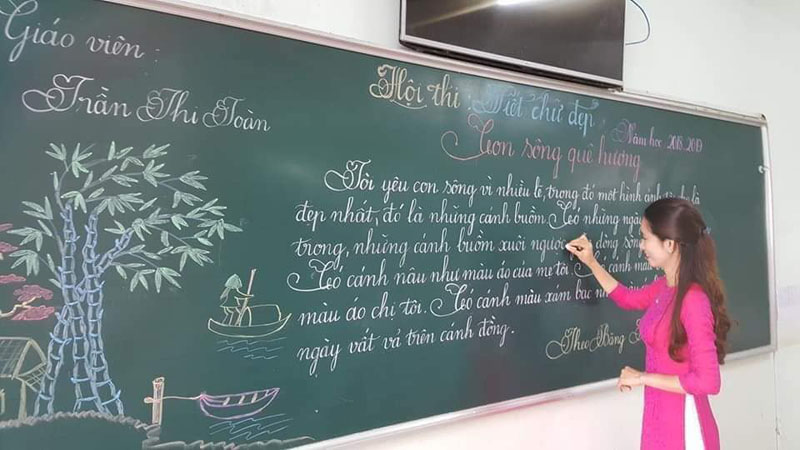 Giáo viên:
Trần Thi Toàn
Hội thi: Viết chữ đẹp
Năm học 2018.2019
Con sông quê hương
Tôi yêu con sông vì nhiều lẽ, trong đó một hình ảnh là
đẹp nhất, đó là những cánh buồm. Có những ngày
trong, những cánh buồm xuôi ngược dòng sông
Có cánh nâu như màu áo của mẹ tôi. Có cánh màu
màu áo chị tôi. Có cánh màu xám bạc
ngày vất vả trên cánh đồng.
Theo Băng